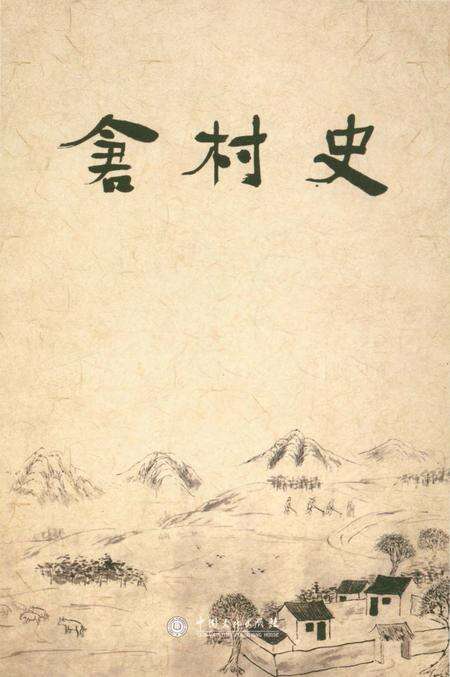 倉村史
中国文化出版社
PUBLISHING HOUSE